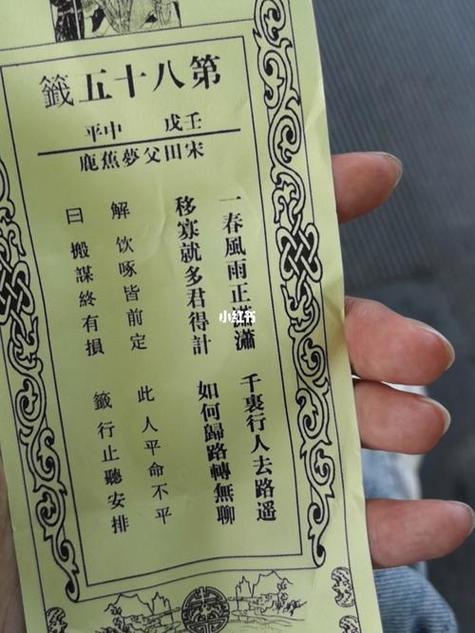 第八十五籤
壬戊 中平
宋田父夢蕉鹿
一春風雨正瀟瀟 千裏行人去路遙
移寡就多君得計 如何歸路轉無聊
解 饮啄皆前定 此 人平命不平
曰 搬謀終有損 籤 行止聽安排
小红书